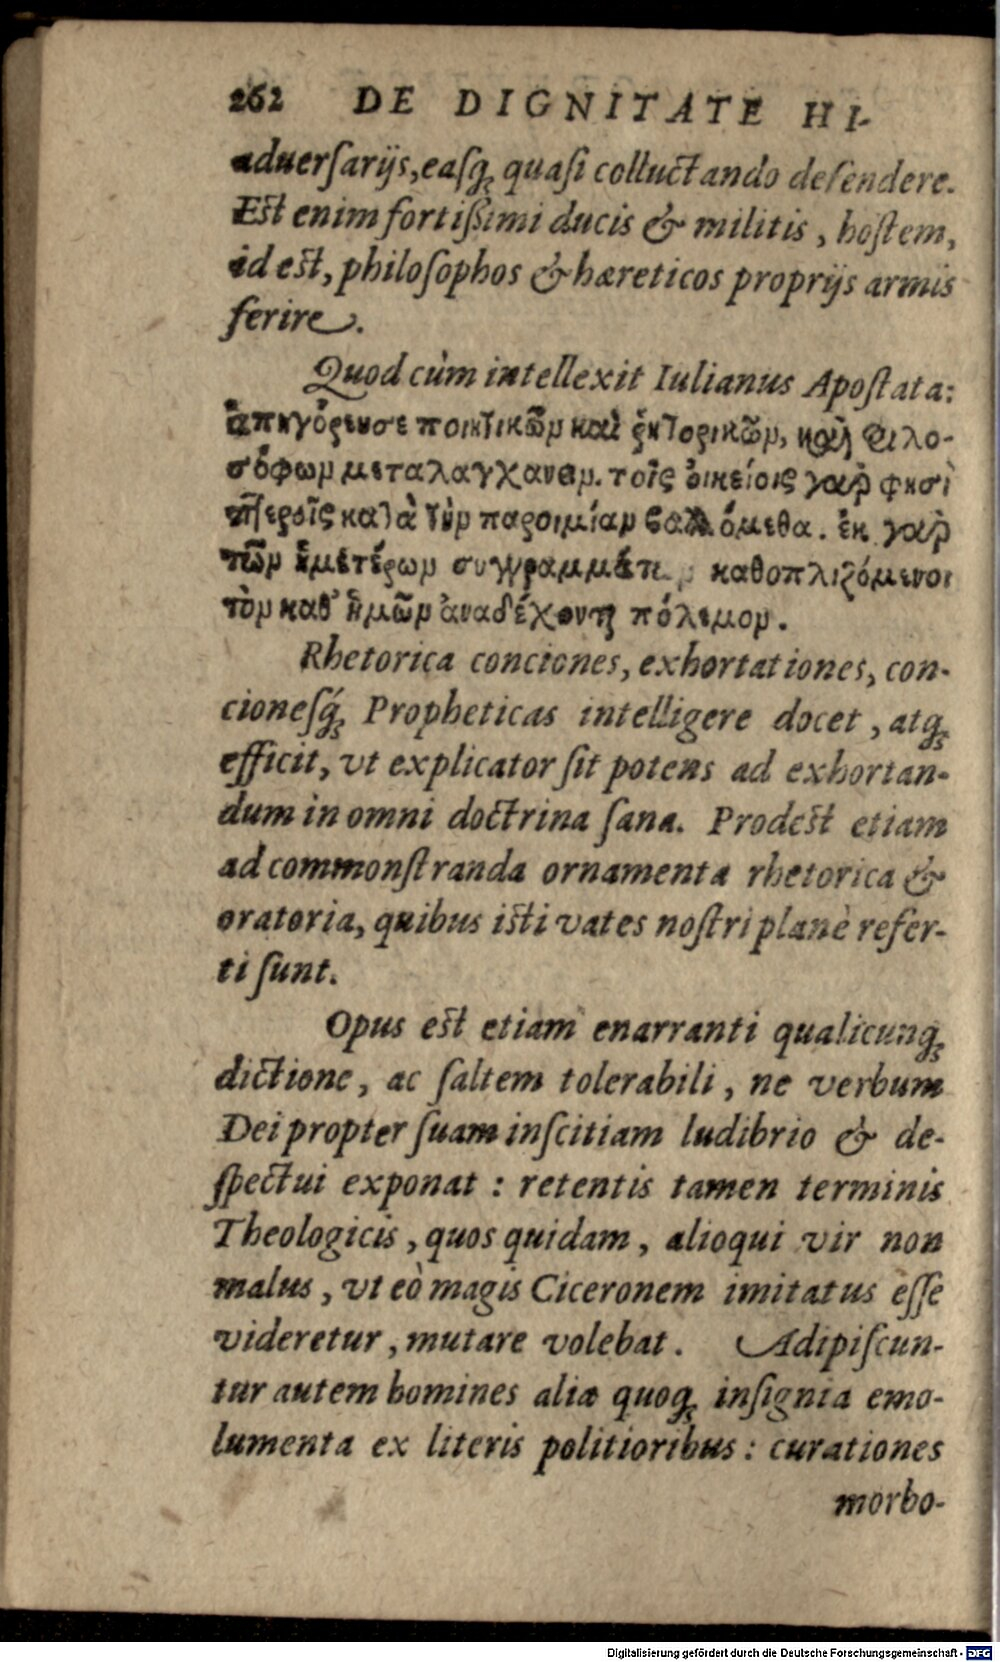 262 DE DIGNITATE HI-
aduerſarijs, eaſq́ꝫ quaſi colluctando defendere.
Eſt enim fortiſsimi ducis & militis, hoſtem,
id eſt, philoſophos & hæreticos proprijs armis
ferire.
Quod cùm intellexit Iulianus Apoſtata:
ἀπηγόρευσε ποιητικῶν καὶ ῥητορικῶν, καὶ φιλο-
σόφων μεταλαγχανειν. τοῖς οἰκείοις γὰρ φησὶ
πτεροῖς κατὰ τὴν παροιμίαν βαλλόμεθα. ἐκ γὰρ
τῶν ἡμετέρων συγγραμμάτων καθοπλιζόμενοι
τὸν καθ' ἡμῶν ἀναδέχονται πόλεμον.
Rhetorica conciones, exhortationes, con-
cioneſq́ꝫ Propheticas intelligere docet, atqꝫ
efficit, vt explicator ſit potens ad exhortan-
dum in omni doctrina ſana. Prodeſt etiam
ad commonſtranda ornamenta rhetorica &
oratoria, quibus iſti vates noſtri planè refer-
ti ſunt.
Opus eſt etiam enarranti qualicunqꝫ
dictione, ac ſaltem tolerabili, ne verbum
Dei propter ſuam inſcitiam ludibrio & de-
ſpectui exponat: retentis tamen terminis
Theologicis, quos quidam, alioqui vir non
malus, vt eò magis Ciceronem imitatus eſſe
videretur, mutare volebat. Adipiſcun-
tur autem homines alia quoqꝫ inſignia emo-
lumenta ex literis politioribus: curationes
morbo-
Digitalisierung gefördert durch die Deutsche Forschungsgemeinschaft - DFG